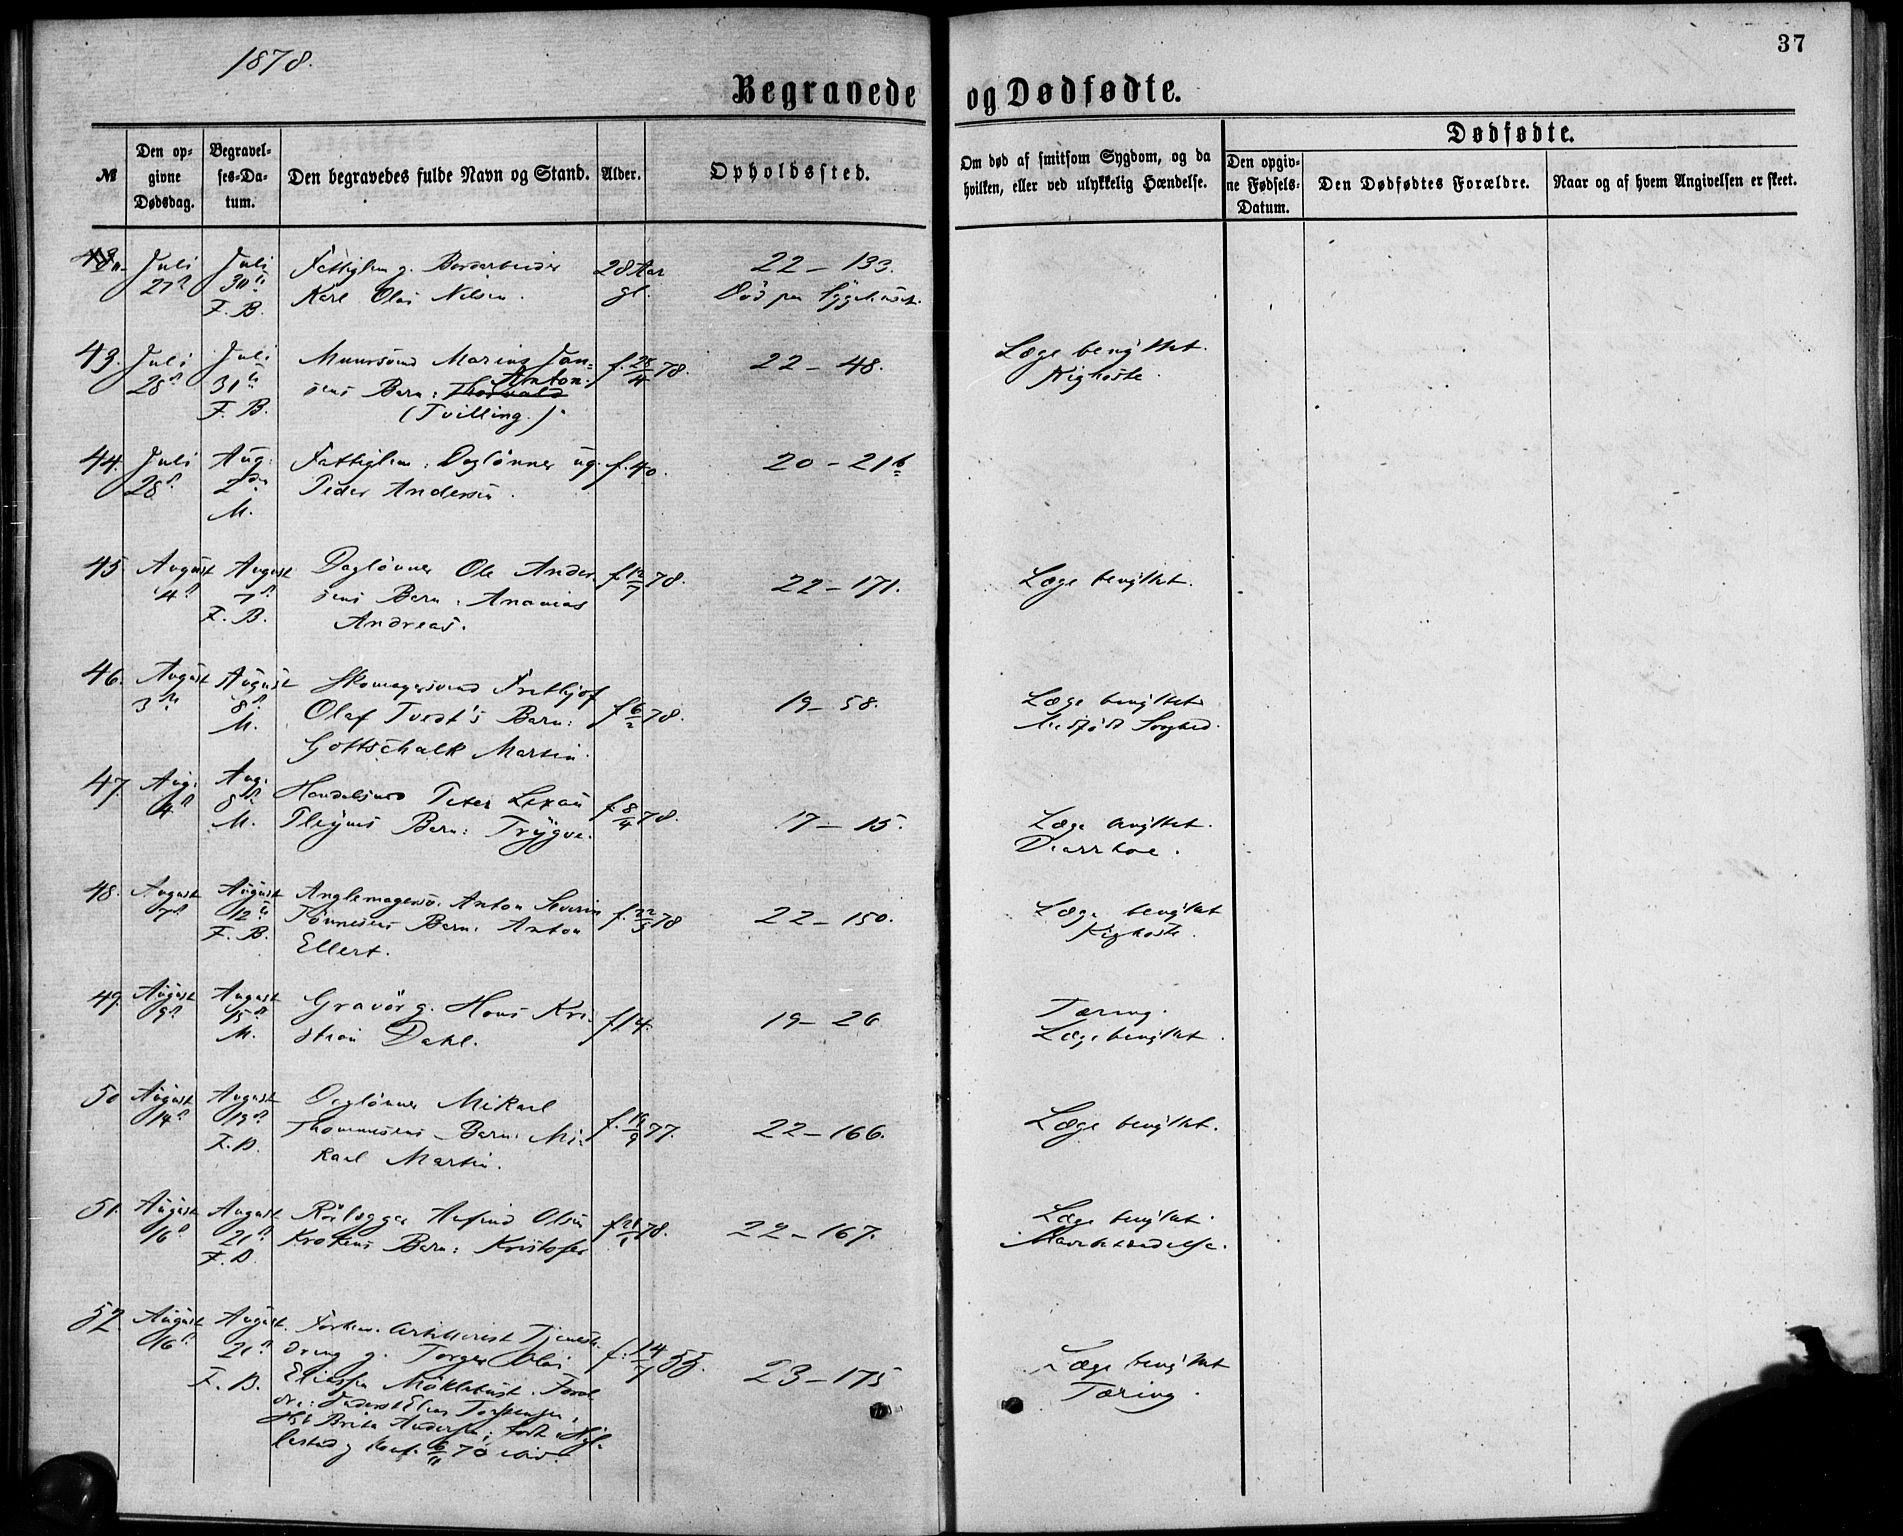 1878.
37
Begravede og Dødfødte.
№
Den op-
givne
Dødsdag.
Begravel-
ses-Da-
tum.
Den begravedes fulde Navn og Stand.
Alder.
Opholdssted.
Om død af smitsom Sygdom, og da
hvilken, eller ved ulykkelig Hændelse.
Dødfødte.
Den opgiv-
ne Fødsels-
Datum.
Den Dødfødtes Forældre.
Naar og af hvem Angivelsen er skeet.
Juli
27
Juli
30
F. B.
Fattiglem g.
Karl Olai Nilsen.
28 Aar
gl.
22 – 133.
Død paa Sygehuset.
43.
Juli
28
Juli
31
F. B.
Muursvend Marius Jan-
sens Barn: Thorvald Anton.
(Tvilling.)
f. 28/4 78.
22 – 48.
Læge benyttet.
Kighoste.
44.
Juli
28
Aug.
2
M.
Fattiglem: Daglønner ug.
Peder Andersen.
f. 40.
20 – 21 b
45.
August
4
August
7
F. B.
Daglønner Ole Ander-
sens Barn: Ananias
Andreas.
f. 12/7 78.
22 – 171.
Læge benyttet.
46.
August
3
August
8
M.
Skomagersvend Frithjof
Olaf Tvedt's Barn:
Gottschalk Martin.
f. 6/2 78.
19 – 58.
Læge benyttet
Medfødt Svaghed.
47.
Aug.
4
Aug.
8
M.
Peter
Barn: Trygve.
f. 8/4 78.
17 – 15.
Læge benyttet.
Diarrhoe.
48.
August
7
August
12
F. B.
Anton Severin
Tønnesens Barn: Anton
Ellert.
f. 22/5 78
22 – 150.
Læge benyttet
Kighoste.
49.
August
9
August
15
M.
Gravör g. Hans Kri-
stian Dahl.
f. 14.
19 – 26
Tæring.
Læge benyttet.
50
August
14
August
19
F. B.
Daglønner Mikael
Thommesens Barn: Mi-
kael Martin.
f. 19/9 77.
22 – 166.
Læge benyttet.
51.
August
16
August
21
F. B.
Olsen
Krokens Barn: Kristofer
f. 21/1 78.
22 – 167.
Læge benyttet.
Mavebetændelse.
52.
August
16
August.
21
F. B.
Artillerist Tjeneste-
dreng g. Torger Olai
f. 14/7 55.
23 – 175
Læge benyttet
Tæring.